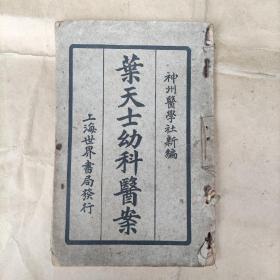 神州醫學社新編
葉天士幼科醫案
上海世界書局發行